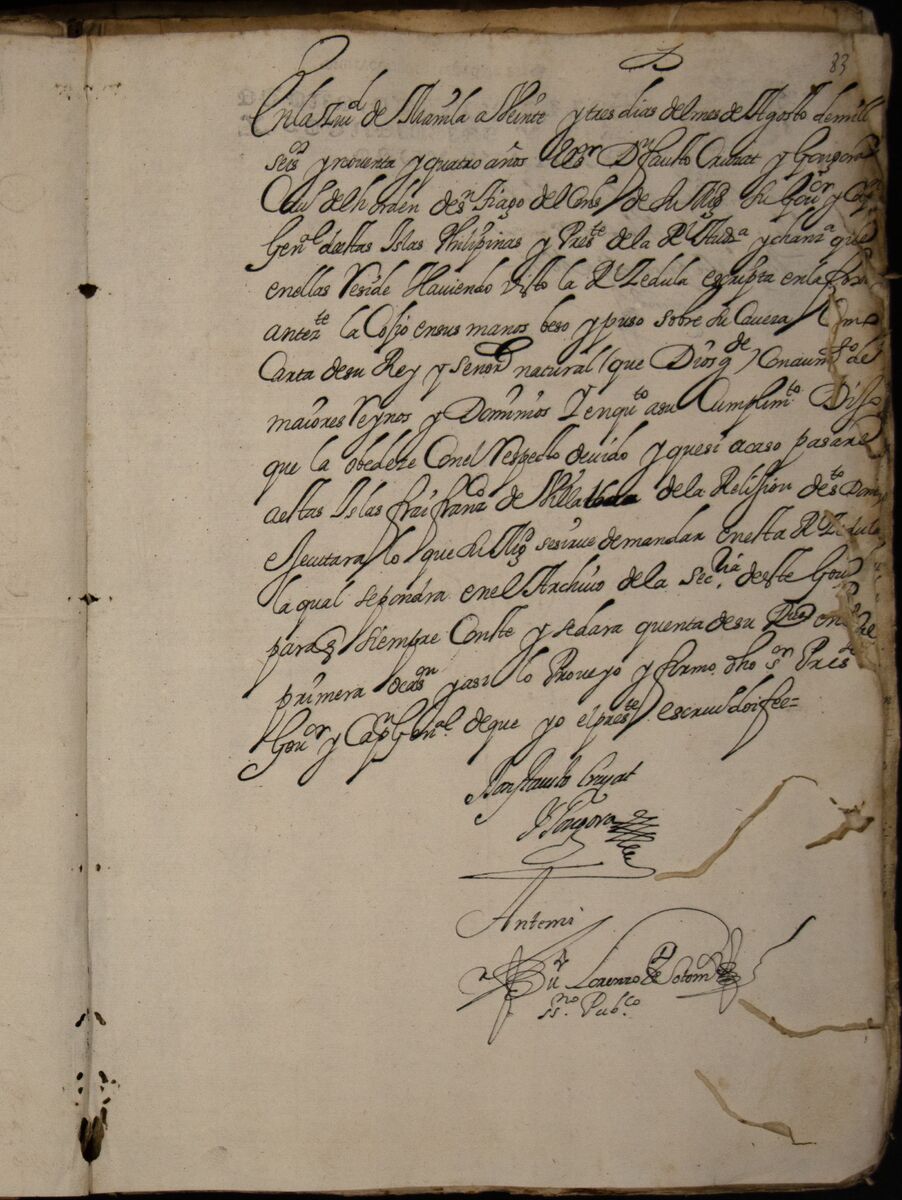 83
En la Ciud de Manila a Veinte y tres dias del mes de Agosto de mill
seisos y noventa y quatro años el sor Dn fausto Cruzat y Gongora
Cauo del horden de sn Tiago del Cons de su Magd su Gouor y Capn
Genl destas Islas Philipinas y Preste de la Rl Auda y chanza que
en ellas Reside Haviendo Visto la Rl Zedula escripta en la foxa
antezte la Cojio en sus manos beso y puso sobre su Caveza Como
Carta de su Rey y señor natural (que Dios gde) Con aumto de
maiores Reynos y Dominios Y en quto a su Cumplimto Dijo
que la obedeze Con el Respecto devido y que si acaso pasare
a estas Islas frai franco de Villalba de la Relission de sto Domgo
executara lo que su Magd se sirve de mandar en esta Rl Zedula
la qual se pondra en el Archivo de la Secria deste Gouo
para q siempre Conste y se dara quenta de su en la
primera ocasn y asi lo Proveyo y firmo dho sr Preste
Gouor y Capn Genl de que yo el preste escriuo doi fee=
Don fausto Cruzat
Y Gongora
Antemi
Lorenzo de Sotomr
ssno Pubco